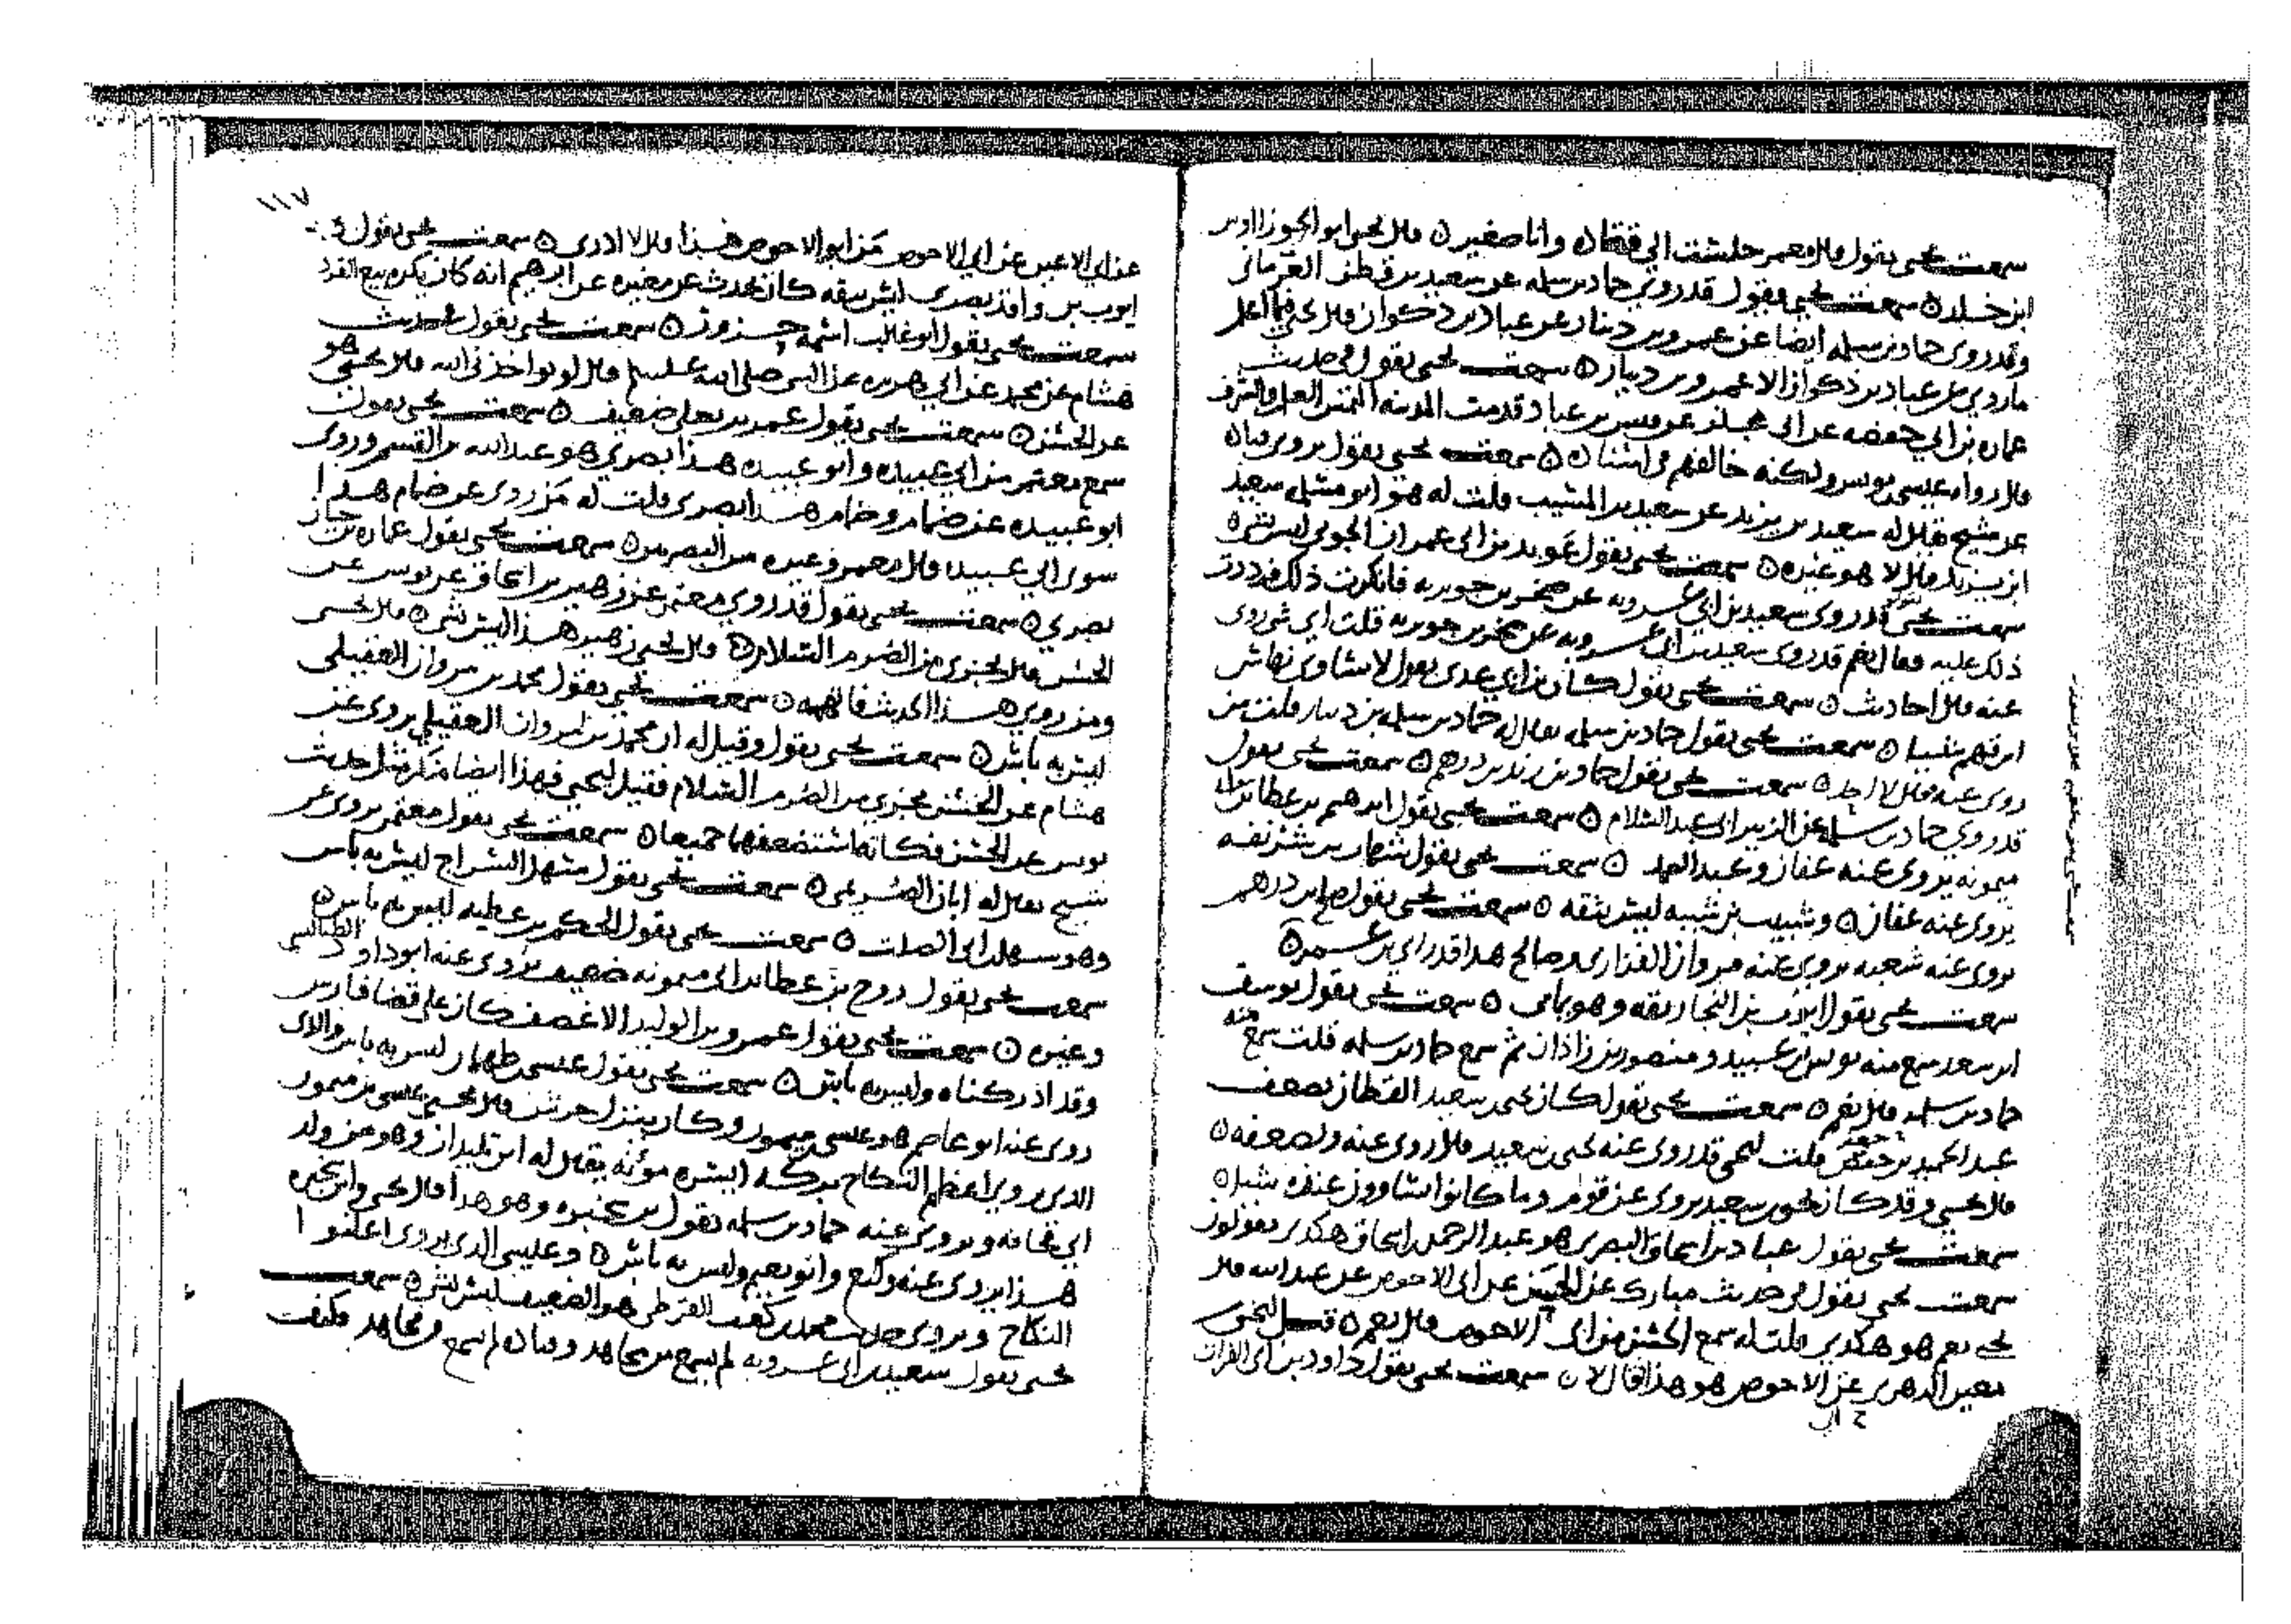 سمعت يحيى يقول قال معمر جلست الى قتادة وانا صغير ه قال يحيى ابو الجوزا اوس
ابن خلد ه سمعت يحيى يقول قد روى حماد بن سلمه عن سعيد بن قطن القرماني
وقد روى حماد بن سلمه ايضا عن عمرو بن دينار عن عباد بن ذكوان قال يحيى فما اعلم
ما روى عن عباد بن ذكوان الا عمرو بن دينار ه سمعت يحيى يقول في حديث
عماره بن ابي حفصه عن ابي مجلز عن قيس بن عباد قدمت المدينه التمس العلم والشرف
قال رواه عيسى بن يونس ولكنه خالفهم في اسناده ه سمعت يحيى يقول يروى قتاده
عن شيخ يقال له سعيد بن يزيد عن سعيد بن المسيب قلت له هو ابو مسلمه سعيد
ابن يزيد قال لا هو غيره ه سمعت يحيى يقول عويد بن ابي عمران الجوني ليس بشي ه
سمعت يحيى يقول قد روى سعيد بن ابي عروبه عن صخر بن جويريه فانكرت ذلك فرددت
ذلك عليه فقال نعم قد روى سعيد بن ابي عروبه عن صخر بن جويريه قلت اي شي روى
عنه قال احاديث ه سمعت يحيى يقول كان ابن ابي عدي يقول
سمعت يحيى يقول حماد بن سلمه يقال له حماد بن سلمه بن دينار قلت من
روى عنه قال لا احد ه سمعت يحيى يقول حماد بن زيد بن درهم ه سمعت يحيى يقول
قد روى حماد بن سلمه عن الزبير ابي عبد السلام ه سمعت يحيى يقول ابرهيم بن عطا بن ابي
ميمونه يروى عنه عفان وعبد الصمد ه سمعت يحيى يقول ثقه
يروى عنه عفان ه وشبيب بن شيبه ليس بثقه ه سمعت يحيى يقول صالح بن درهم
يروى عنه شعبه يروى عنه مروان الفزاري وصالح هذا قد راى بن عمر ه
سمعت يحيى يقول ايوب بن النجار ثقه وهو يمامي ه سمعت يحيى يقول يوسف
ابن سعد سمع منه يونس بن عبيد ومنصور بن زاذان ثم سمع حماد بن سلمه قلت سمع منه
حماد بن سلمه قال نعم ه سمعت يحيى يقول كان يحيى بن سعيد القطان يضعف
عبد الحميد بن جعفر قلت ليحيى قد روى عنه يحيى بن سعيد قال روى عنه ويضعفه ه
قال يحيى وقد كان يحيى بن سعيد يروى عن قوم وما كانوا يساوون عنده شيا ه
سمعت يحيى يقول عباد بن اسحاق البصري هو عبد الرحمن بن اسحاق هكذى يقولون
سمعت يحيى يقول في حديث مبارك عن الحسن عن ابي الاحوص عن عبد الله قال
يحيى نعم هو هكذى قلت له سمع الحسن من ابي الاحوص قال نعم ه قيل ليحيى
عن الاحوص هو هذا قال لا ه سمعت يحيى يقول داود بن ابي الفرات
١١٧
عن ابي الاعين عن ابي الاحوص من ابو الاحوص هذا قال لا ادرى ه سمعت يحيى يقول
ايوب بن واقد بصرى ليس بثقه كان يحدث عن مغيره عن ابرهيم انه كان يكره بيع القرد
سمعت يحيى يقول ابو غالب اسمه حزور ه سمعت يحيى يقول حديث
هشام عن محمد عن ابي هريره عن النبي صلى الله عليه وسلم قال لو يواخذني الله قال يحيى هو
عن الحسن ه سمعت يحيى يقول عمر بن يعلى ضعيف ه سمعت يحيى يقول
سمع معتمر من ابي عبيده وابو عبيده هذا بصرى هو عبد الله بن القسم وروى
ابو عبيده عن ضمام وضمام هذا بصرى قلت له من روى عن ضمام هذا
سوى ابي عبيده قال معمر وغيره من البصريين ه سمعت يحيى يقول عماره بن
بصرى ه سمعت يحيى يقول قد روى معتمر عن زهير بن اسحاق عن يونس عن
الحسن قال يجزى من الصرم السلام ه قال يحيى زهير هذا ليس بشي ه قال يحيى
ومن روى هذا الحديث فاتهمه ه سمعت يحيى يقول محمد بن مروان العقيلي
ليس به باس ه سمعت يحيى يقول وقيل له ان محمد بن مروان العقيلي يروى عن
هشام عن الحسن يجزى من الصرم السلام فقيل ليحيى فهذا ايضا منكر مثل حديث
يونس عن الحسن فكانه استضعفهما جميعا ه سمعت يحيى يقول معتمر يروى عن
شيخ يقال له ابان الضريس ه سمعت يحيى يقول سهل السراج ليس به باس
وهو سهل بن ابي الصلت ه سمعت يحيى يقول الحكم بن عطيه ليس به باس ه
سمعت يحيى يقول روح بن عطا بن ابي ميمونه ضعيف يروى عنه ابو داود الطيالسي
وغيره ه سمعت يحيى يقول عمرو بن الوليد الاغضف كان على قضا فارس
وقد ادركناه وليس به باس ه سمعت يحيى يقول عيسى بن طهمان ليس به باس والذي
روى عنه ابو عاصم هو عيسى بن ميمون وكان ينزل جرش قال يحيى عيسى بن ميمون
الذي يروي اعظم النكاح بركه ايسره مؤنه يقال له ابن تليدان وهو من ولد
ابي قحافه ويروى عنه حماد بن سلمه يقول بن سخبره وهو هذا قال يحيى وابن سخبره
هذا يروى عنه وكيع وابو نعيم وليس به باس ه وعيسى الذي يروى اعلنوا
النكاح ويروى حديث محمد بن كعب القرظي هو الضعيف ليس بشي ه سمعت
يحيى يقول سعيد بن ابي عروبه لم يسمع من مجاهد وقتاده لم يسمع من مجاهد